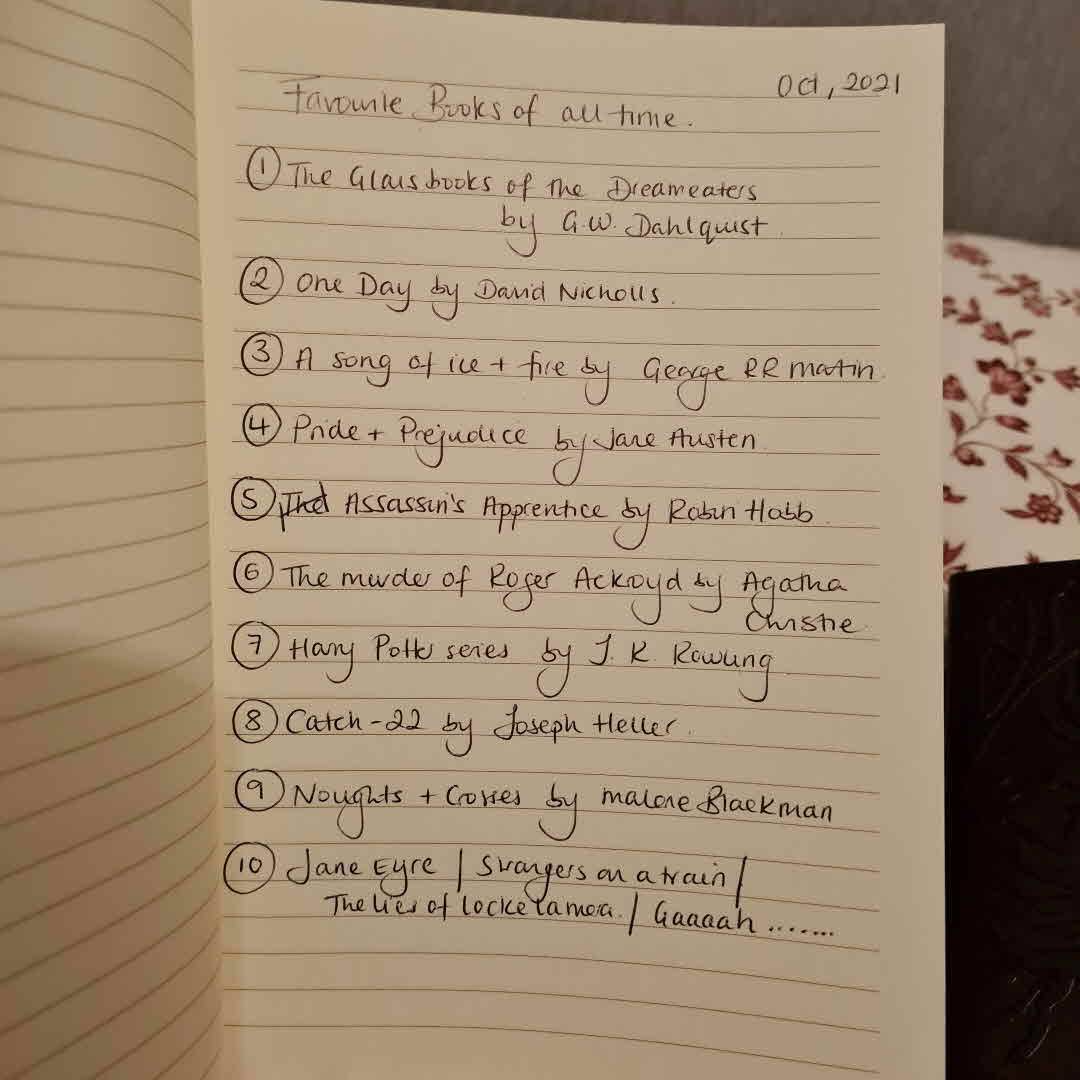 Oct, 2021
Favourite Books of all time.
① The Glass books of the Dreameaters
by G.W. Dahlquist
② One Day by David Nicholls.
③ A song of ice + fire by George RR Martin.
④ Pride + Prejudice by Jane Austen
⑤ The Assassin's Apprentice by Robin Hobb
⑥ The murder of Roger Ackroyd by Agatha
Christie
⑦ Harry Potter series by J. K. Rowling
⑧ Catch-22 by Joseph Heller.
⑨ Noughts + Crosses by malorie Blackman
⑩ Jane Eyre / Strangers on a train /
The lies of locke lamora. / Gaaaah .......